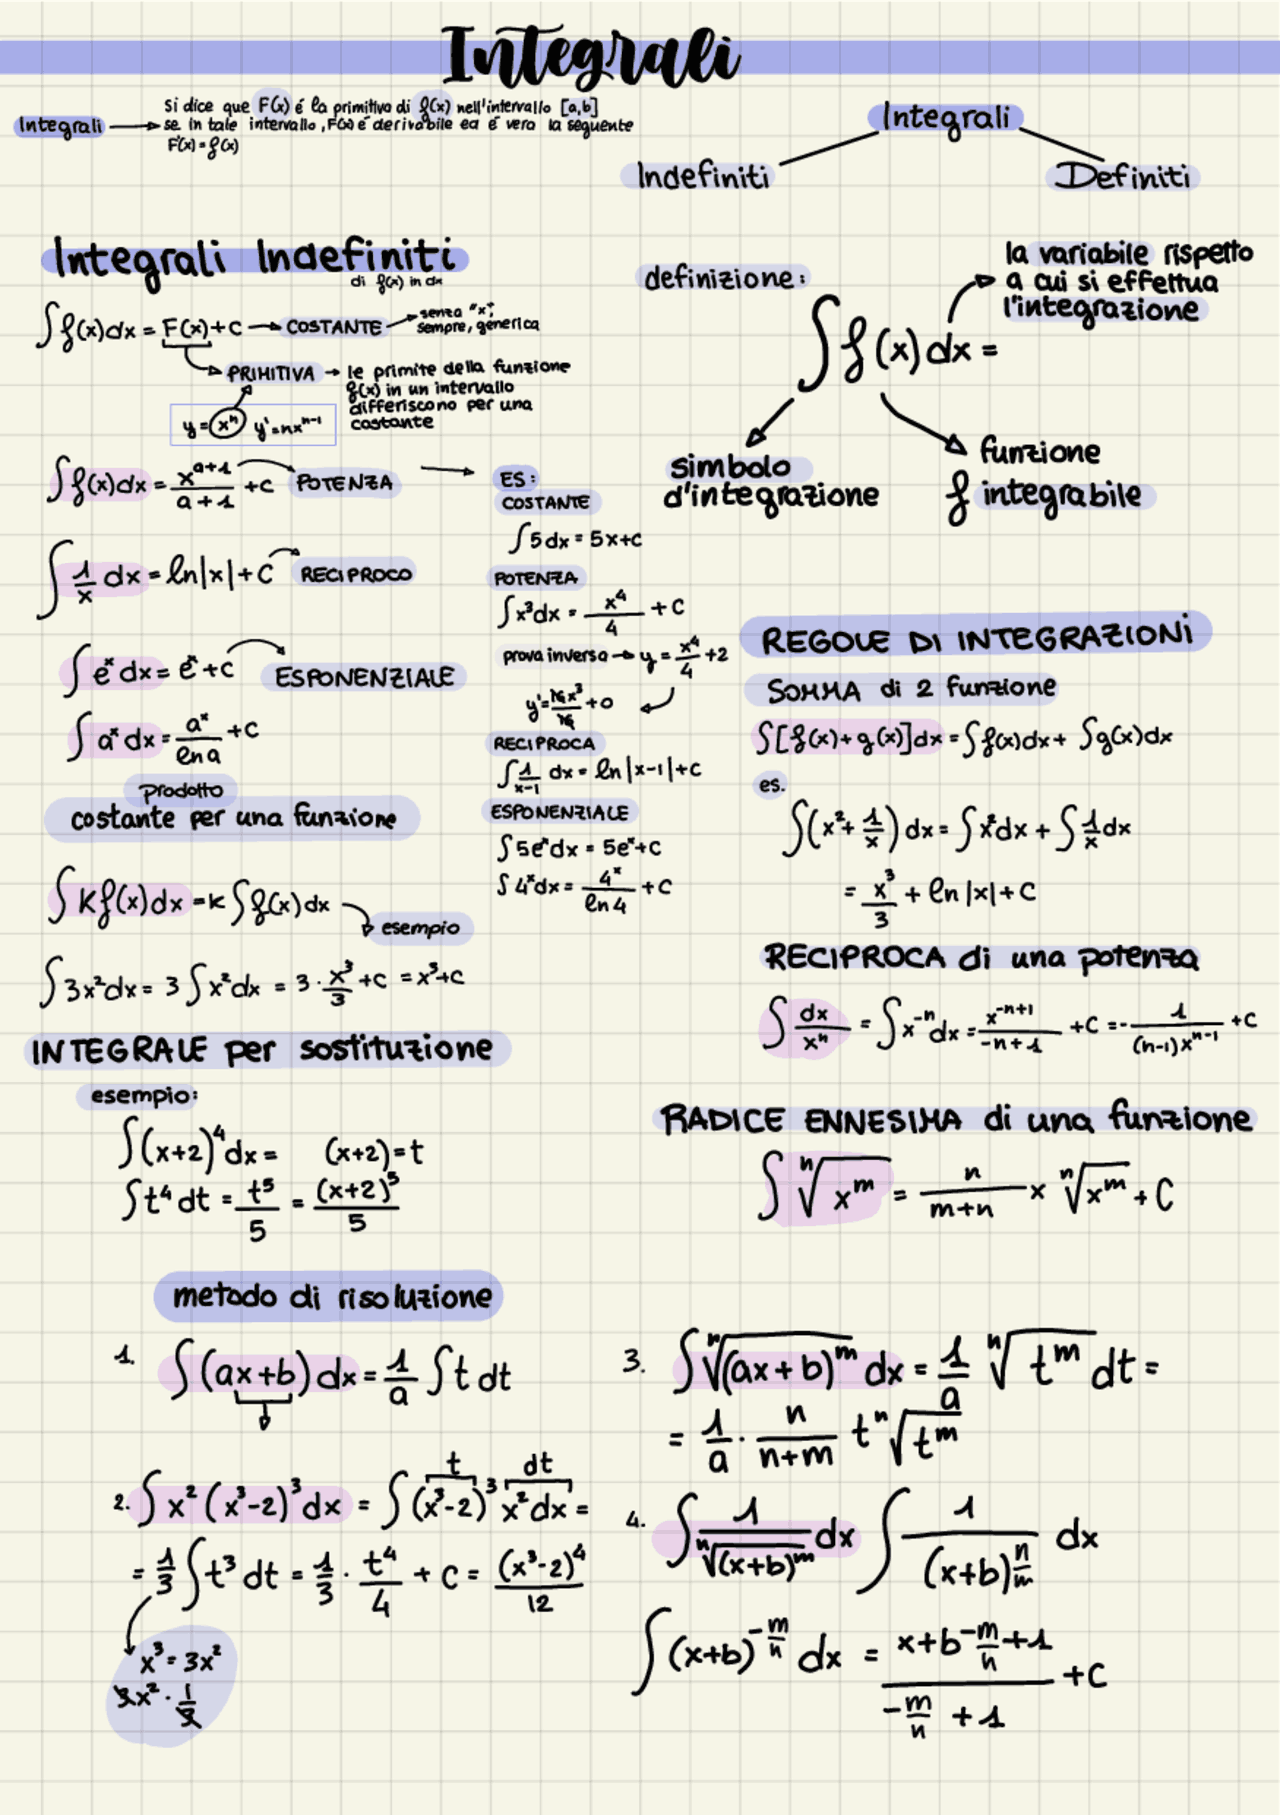 Integrali
Integrali → Si dice que F(x) é la primitiva di f(x) nell'intervallo [a,b]
se in tale intervallo, F(x) é derivabile ed é vera la seguente
F'(x) = f(x)
Integrali
Indefiniti
Definiti
Integrali Indefiniti
di f(x) in dx
∫f(x)dx = F(x)+c → COSTANTE → senza "x",
sempre, generica
PRIMITIVA → le primite della funzione
f(x) in un intervallo
differiscono per una
costante
y = xⁿ y' = nxⁿ⁻¹
∫f(x)dx = x^(a+1)/(a+1) + c POTENZA
∫1/x dx = ln|x| + c RECIPROCO
∫eˣdx = eˣ+c ESPONENZIALE
∫aˣdx = aˣ/ln a + c
prodotto
costante per una funzione
∫Kf(x)dx = K∫f(x)dx
esempio
∫3x²dx = 3∫x²dx = 3·x³/3 + c = x³+c
INTEGRALE per sostituzione
esempio:
∫(x+2)⁴dx = (x+2)=t
∫t⁴dt = t⁵/5 = (x+2)⁵/5
ES:
COSTANTE
∫5dx = 5x+c
POTENZA
∫x³dx = x⁴/4 + c
prova inversa → y = x⁴/4 + 2
y' = 4x³/4 + 0
RECIPROCA
∫1/(x-1) dx = ln|x-1|+c
ESPONENZIALE
∫5eˣdx = 5eˣ+c
∫4ˣdx = 4ˣ/ln4 + c
definizione:
∫f(x)dx =
la variabile rispetto
a cui si effettua
l'integrazione
simbolo
d'integrazione
funzione
f integrabile
REGOLE DI INTEGRAZIONI
SOMMA di 2 funzione
∫[f(x)+g(x)]dx = ∫f(x)dx + ∫g(x)dx
es.
∫(x²+1/x)dx = ∫x²dx + ∫1/x dx
= x³/3 + ln|x|+c
RECIPROCA di una potenza
∫dx/xⁿ = ∫x⁻ⁿdx = x^(-n+1)/(-n+1) + c = -1/((n-1)xⁿ⁻¹) + c
RADICE ENNESIMA di una funzione
∫ⁿ√xᵐ = n/(m+n) x ⁿ√xᵐ + c
metodo di risoluzione
1. ∫(ax+b)dx = 1/a ∫t dt
2. ∫x²(x³-2)³dx = ∫(x³-2)³ x²dx =
t dt
= 1/3 ∫t³dt = 1/3 · t⁴/4 + c = (x³-2)⁴/12
x³ = 3x²
3x² · 1/3
3. ∫ⁿ√(ax+b)ᵐ dx = 1/a ⁿ√tᵐ dt =
= 1/a · n/(n+m) t ⁿ√tᵐ
4. ∫1/ⁿ√(x+b)ᵐ dx ∫1/(x+b)^(n/m) dx
∫(x+b)^(-m/n) dx = x+b^(-m/n+1)/(-m/n+1) + c